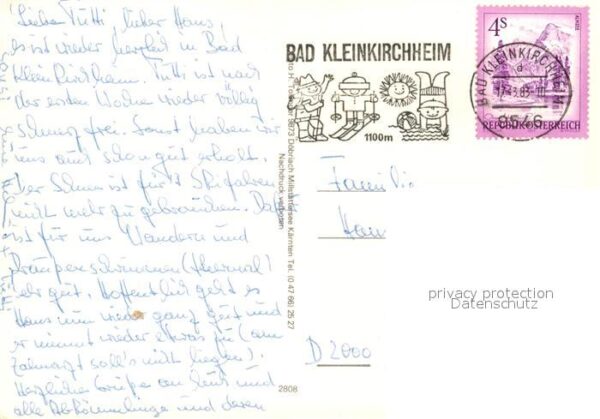 Liebe Tutti, lieber Hans,
es ist wieder herrlich in Bad
Kleinkirchheim. Tutti ist nach
der ersten Woche wieder völlig
schmerzfrei. Sonst haben wir
uns auch schon gut erholt.
Der Schnee ist für's Skifahren
nicht mehr zu gebrauchen. Da
ist für uns Wandern und
draussen schwimmen (Thermal)
sehr gut. Hoffentlich geht es
Hans nun wieder ganz gut und
er nimmt wieder etwas zu (am
Zahnarzt soll's nicht liegen).
Herzliche Grüße an Euch und
alle und deren
BAD KLEINKIRCHHEIM
1100m
4S
REPUBLIK ÖSTERREICH
BAD KLEINKIRCHHEIM
a
9546
9873 Döbriach Millstättersee Kärnten Tel. (0 47 66) 25 27
Nachdruck verboten
2808
Familie
D 2000
privacy protection
Datenschutz